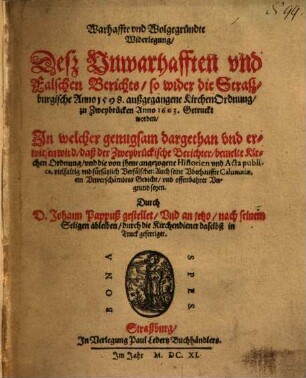 Warhaffte vnd Wolgegründte
Widerlegung/
Desz Vnwarhafften vnd
Falschen Berichts/ so wider die Straß-
burgische Anno 1598. außgegangene KirchenOrdnung/
zu Zweybrücken Anno 1603. Getruckt
worden/
In welcher genugsam dargethan vnd er-
wisen wird/ daß der Zweybrückische Berichter/ bemelte Kir-
chen Ordnung/ vnd die von jhme angezogene Historien vnd Acta publi-
ca, vielfaltig vnd fürsätzlich Verfälschet: Auch seine Vberhauffte Calumniæ,
ein Vnverschämbtes Gedicht/ vnd offenbahrer Vn-
grund seyen.
Durch
D. Johann Pappuß gestellet/ Vnd an jetzo/ nach seinem
Seligen ableiben/ durch die Kirchendiener daselbst in
Truck gefertiget.
BONA
SPES
Straßburg/
In Verlegung Paul Ledertz Buchhändlers.
Im Jahr M. DC. XI.